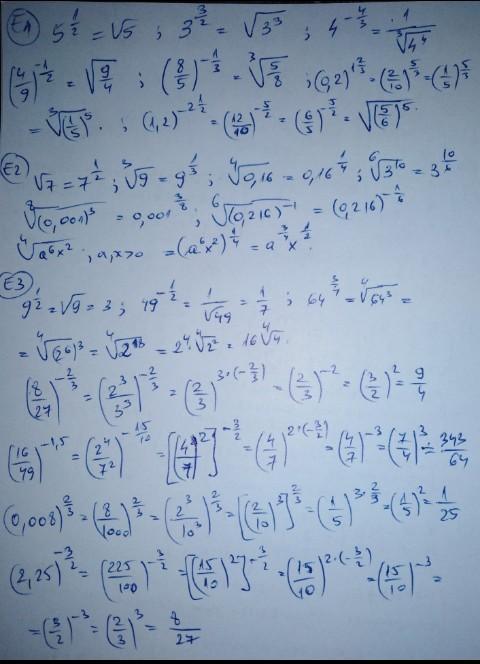 E1 5^{1/2} = √5 ; 3^{3/2} = √3^3 ; 4^{-4/3} = 1/∛4^4
(4/9)^{-1/2} = √(9/4) ; (8/5)^{-1/3} = ∛(5/8) ; (0,2)^{1 2/3} = (2/10)^{5/3} = (1/5)^{5/3}
= ∛(1/5)^5 . ; (1,2)^{-2 1/2} = (12/10)^{-5/2} = (6/5)^{-5/2} = √(5/6)^5 .
E2 √7 = 7^{1/2} ; ∛9 = 9^{1/3} ; ∜0,16 = 0,16^{1/4} ; ⁶√3^{10} = 3^{10/6}
⁸√(0,001)^3 = 0,001^{3/8} ; ⁶√(0,216)^{-1} = (0,216)^{-1/6}
∜a^6x^2 ; a,x>0 = (a^6x^2)^{1/4} = a^{3/2}x^{1/2} .
E3
9^{1/2} = √9 = 3 ; 49^{-1/2} = 1/√49 = 1/7 ; 64^{3/4} = ∜64^3 =
= ∜(2^6)^3 = ∜2^{18} = 2^4·∜2^2 = 16∜4 .
(8/27)^{-2/3} = (2^3/3^3)^{-2/3} = (2/3)^{3·(-2/3)} = (2/3)^{-2} = (3/2)^2 = 9/4
(16/49)^{-1,5} = (2^4/7^2)^{-15/10} = [(4/7)^2]^{-3/2} = (4/7)^{2·(-3/2)} = (4/7)^{-3} = (7/4)^3 = 343/64
(0,008)^{2/3} = (8/1000)^{2/3} = (2^3/10^3)^{2/3} = [(2/10)^3]^{2/3} = (1/5)^{3·2/3} = (1/5)^2 = 1/25
(2,25)^{-3/2} = (225/100)^{-3/2} = [(15/10)^2]^{-3/2} = (15/10)^{2·(-3/2)} = (15/10)^{-3} =
= (3/2)^{-3} = (2/3)^3 = 8/27